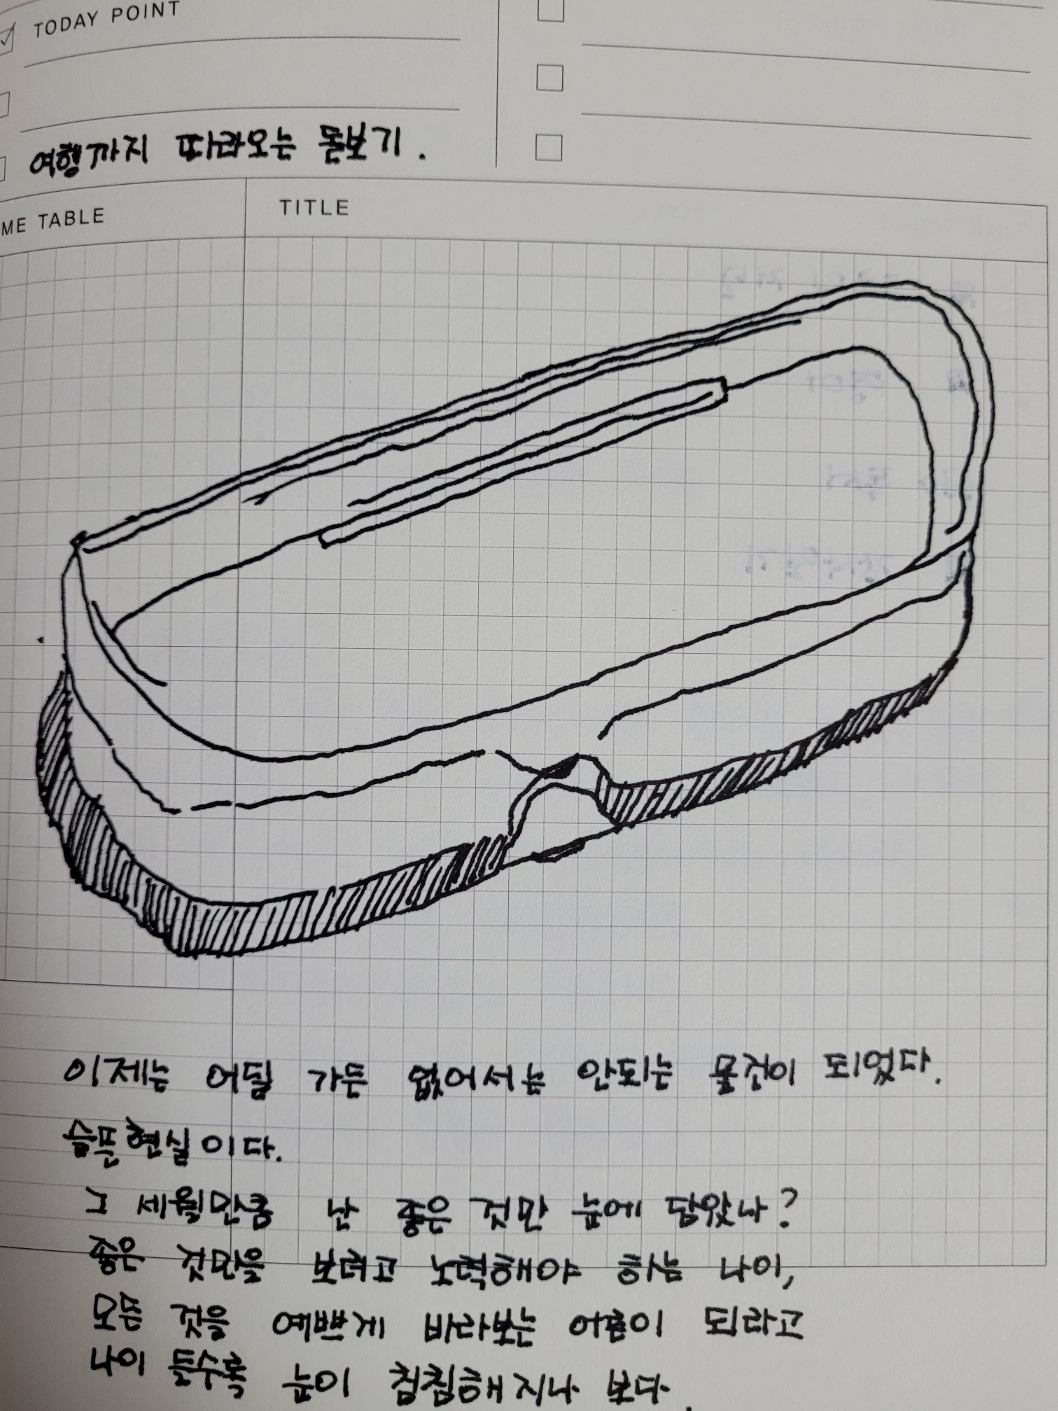 TODAY POINT
여행까지 따라오는 돋보기.
ME TABLE
TITLE
이제는 어딜 가든 없어서는 안되는 물건이 되었다.
슬픈현실이다.
그 세월만큼 난 좋은 것만 눈에 담았나?
좋은 것만을 보려고 노력해야 하는 나이,
모든 것을 예쁘게 바라보는 어른이 되라고
나이 들수록 눈이 침침해지나 보다.